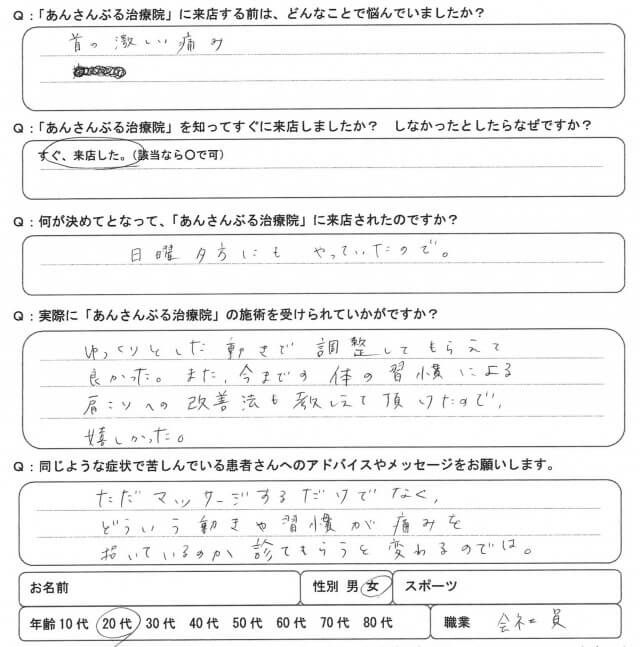 Q：「あんさんぶる治療院」に来店する前は、どんなことで悩んでいましたか？
首の激しい痛み
Q：「あんさんぶる治療院」を知ってすぐに来店しましたか？　しなかったとしたらなぜですか？
すぐ、来店した。（該当なら〇で可）
Q：何が決めてとなって、「あんさんぶる治療院」に来店されたのですか？
日曜夕方にも やっていたので。
Q：実際に「あんさんぶる治療院」の施術を受けられていかがですか？
ゆっくりとした動きで調整してもらえて
良かった。また、今までの体の習慣による
肩こりへの改善法も教えて頂けたので、
嬉しかった。
Q：同じような症状で苦しんでいる患者さんへのアドバイスやメッセージをお願いします。
ただマッサージするだけでなく、
どういう動きや習慣が痛みを
招いているのか診てもらうと変わるのでは。
お名前　性別 男 女　スポーツ
年齢 10代 20代 30代 40代 50代 60代 70代 80代　職業 会社員